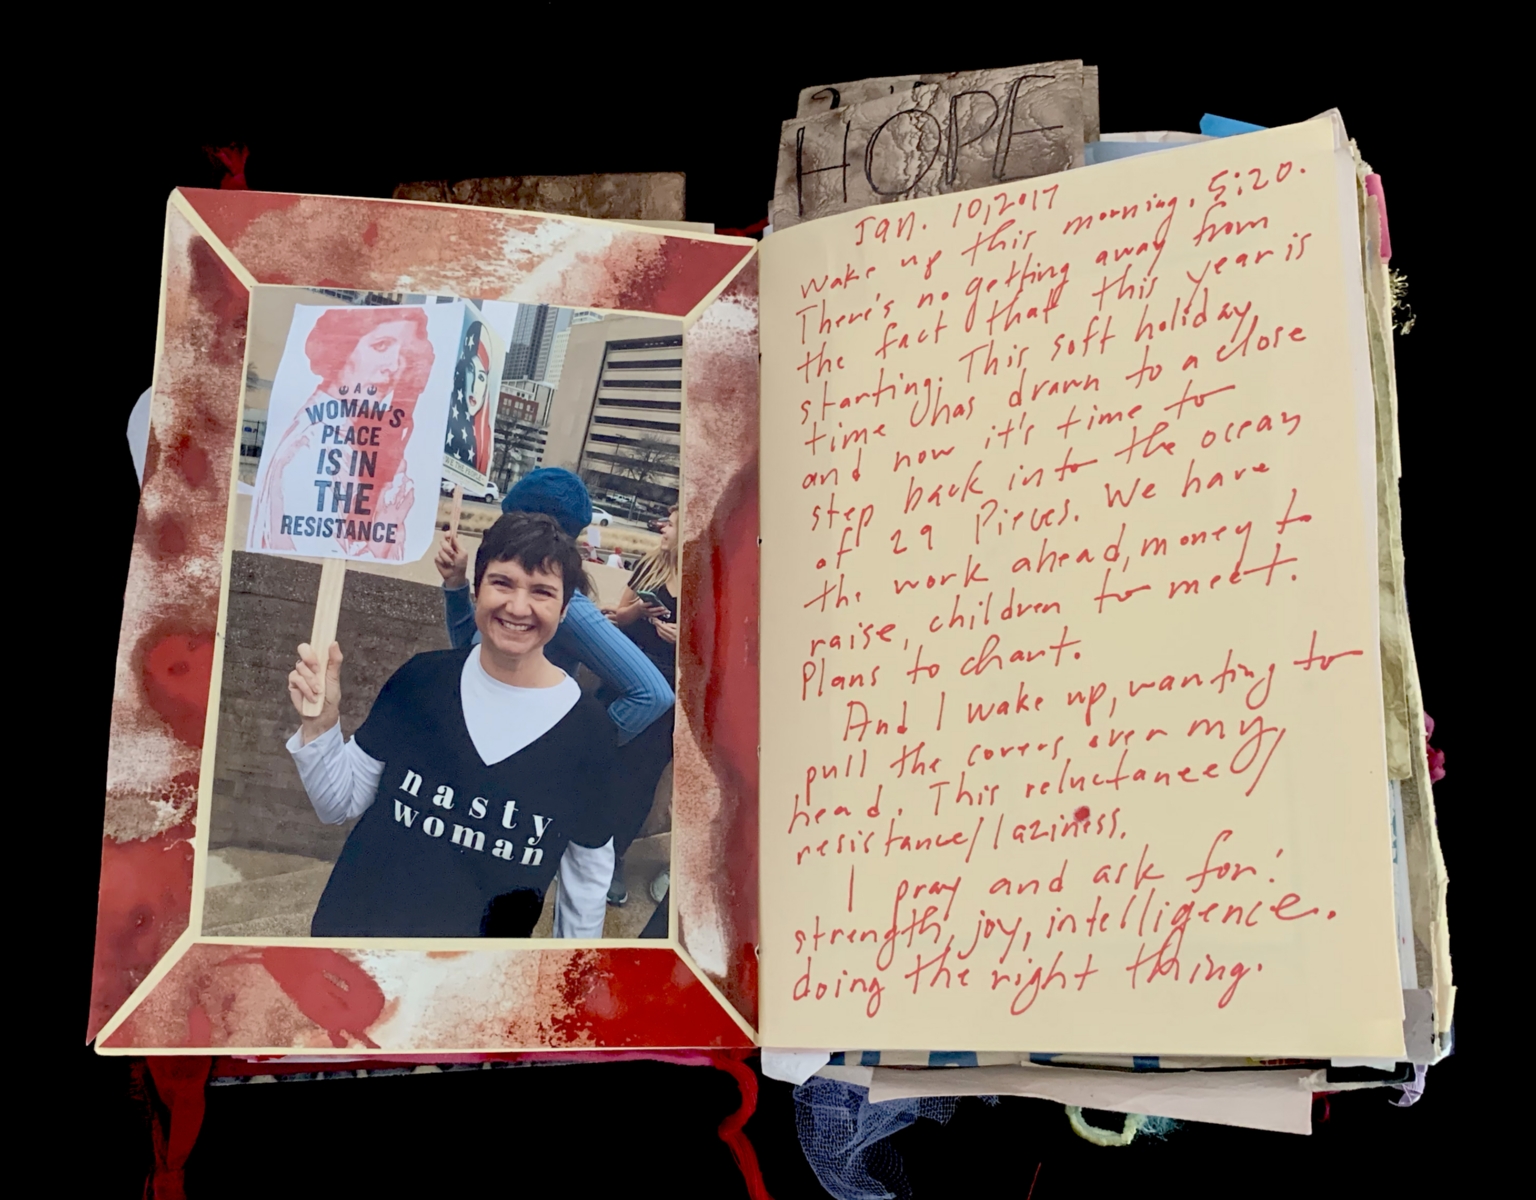 HOPE
A
WOMAN'S
PLACE
IS IN
THE
RESISTANCE
WE THE PEOPLE
nasty
woman
Jan. 10, 2017
Wake up this morning, 5:20.
There's no getting away from
the fact that this year is
starting. This soft holiday
time has drawn to a close
and now it's time to
step back into the ocean
of 29 Pieces. We have
the work ahead, money to
raise, children to meet.
Plans to chart.
And I wake up, wanting to
pull the covers over my
head. This reluctance/
resistance/laziness.
I pray and ask for:
strength, joy, intelligence.
doing the right thing.